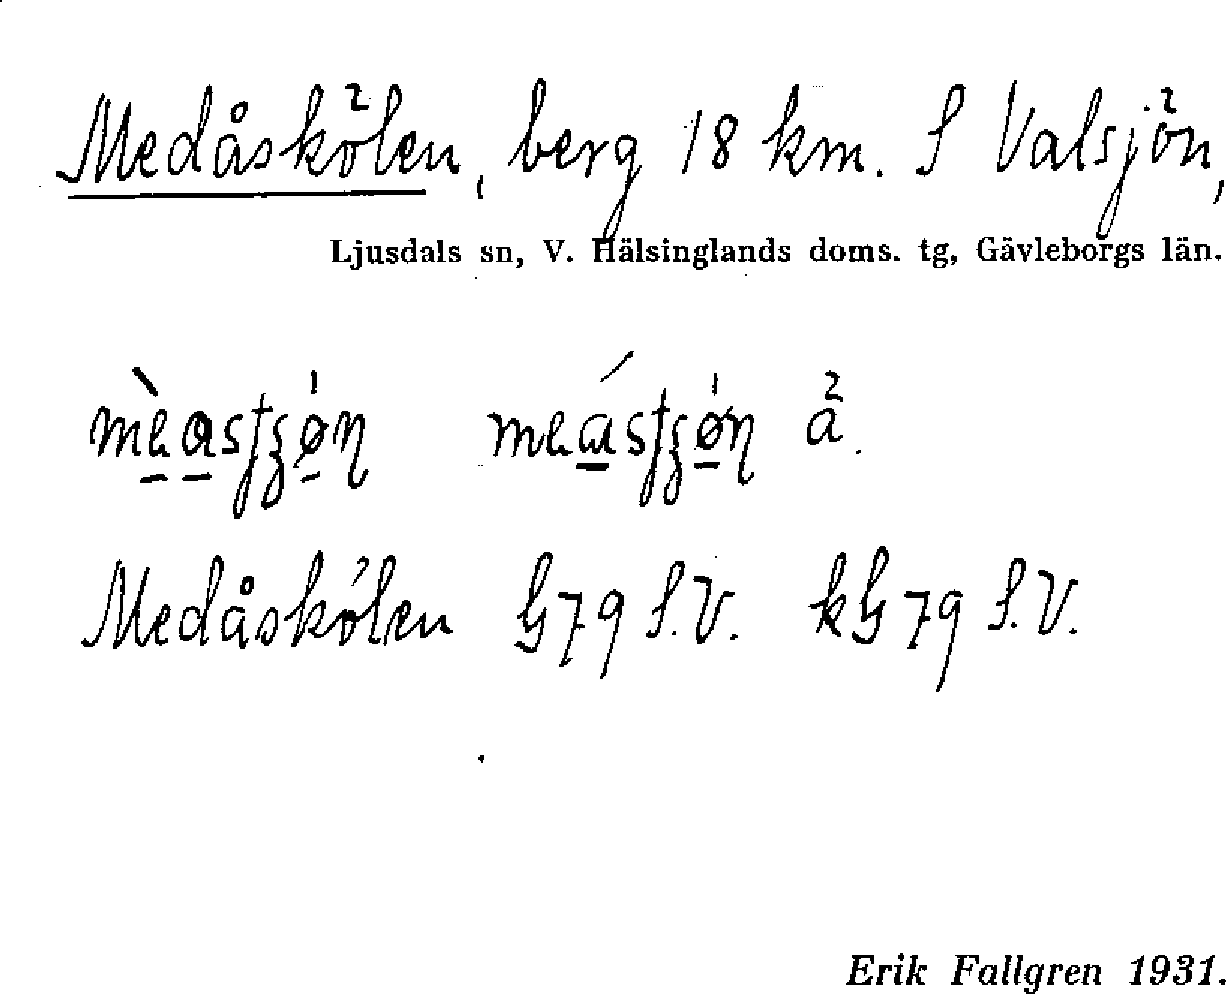 Medåskölen, berg 18 km. S Valsjön,
Ljusdals sn, V. Hälsinglands doms. tg, Gävleborgs län.
Medåskölen G79 S.V. kG79 S.V.
Erik Fallgren 1931.